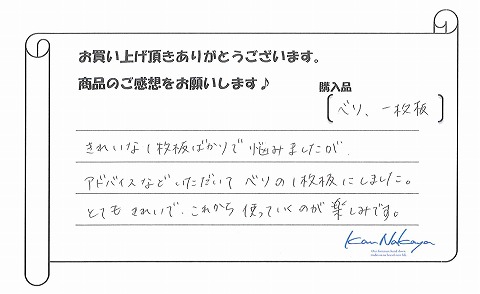 お買い上げ頂きありがとうございます。
商品のご感想をお願いします♪
購入品
ベリ、一枚板
きれいな1枚板ばかりで悩みましたが、
アドバイスなどいただいてベリの1枚板にしました。
とてもきれいで、これから使っていくのが楽しみです。